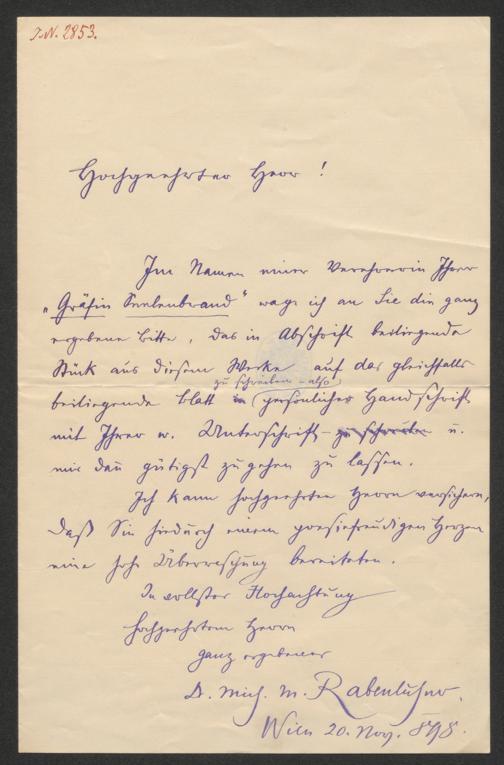 I.N. 2853.
Hochgeehrter Herr!
Im Namen einer Verehrerin Ihrer
"Gräfin Seelenbrand" wage ich an Sie die ganz
ergebene Bitte, das in Abschrift beiliegende
Stück aus diesem Werke auf das gleichfalls
zu schreiben – also
beiliegende Blatt in persönlicher Handschrift
mit Ihrer w. Unterschrift – zu schreiben u.
mir dann gütigst zugehen zu lassen.
Ich kann hochgeehrten Herrn versichern,
daß Sie hiedurch einem poesiefreudigen Herzen
eine hohe Überraschung bereiteten.
In vollster Hochachtung
hochgeehrtem Herrn
ganz ergebener
D. Mich. M. Rabenlechner.
Wien 20. Nov. 898.